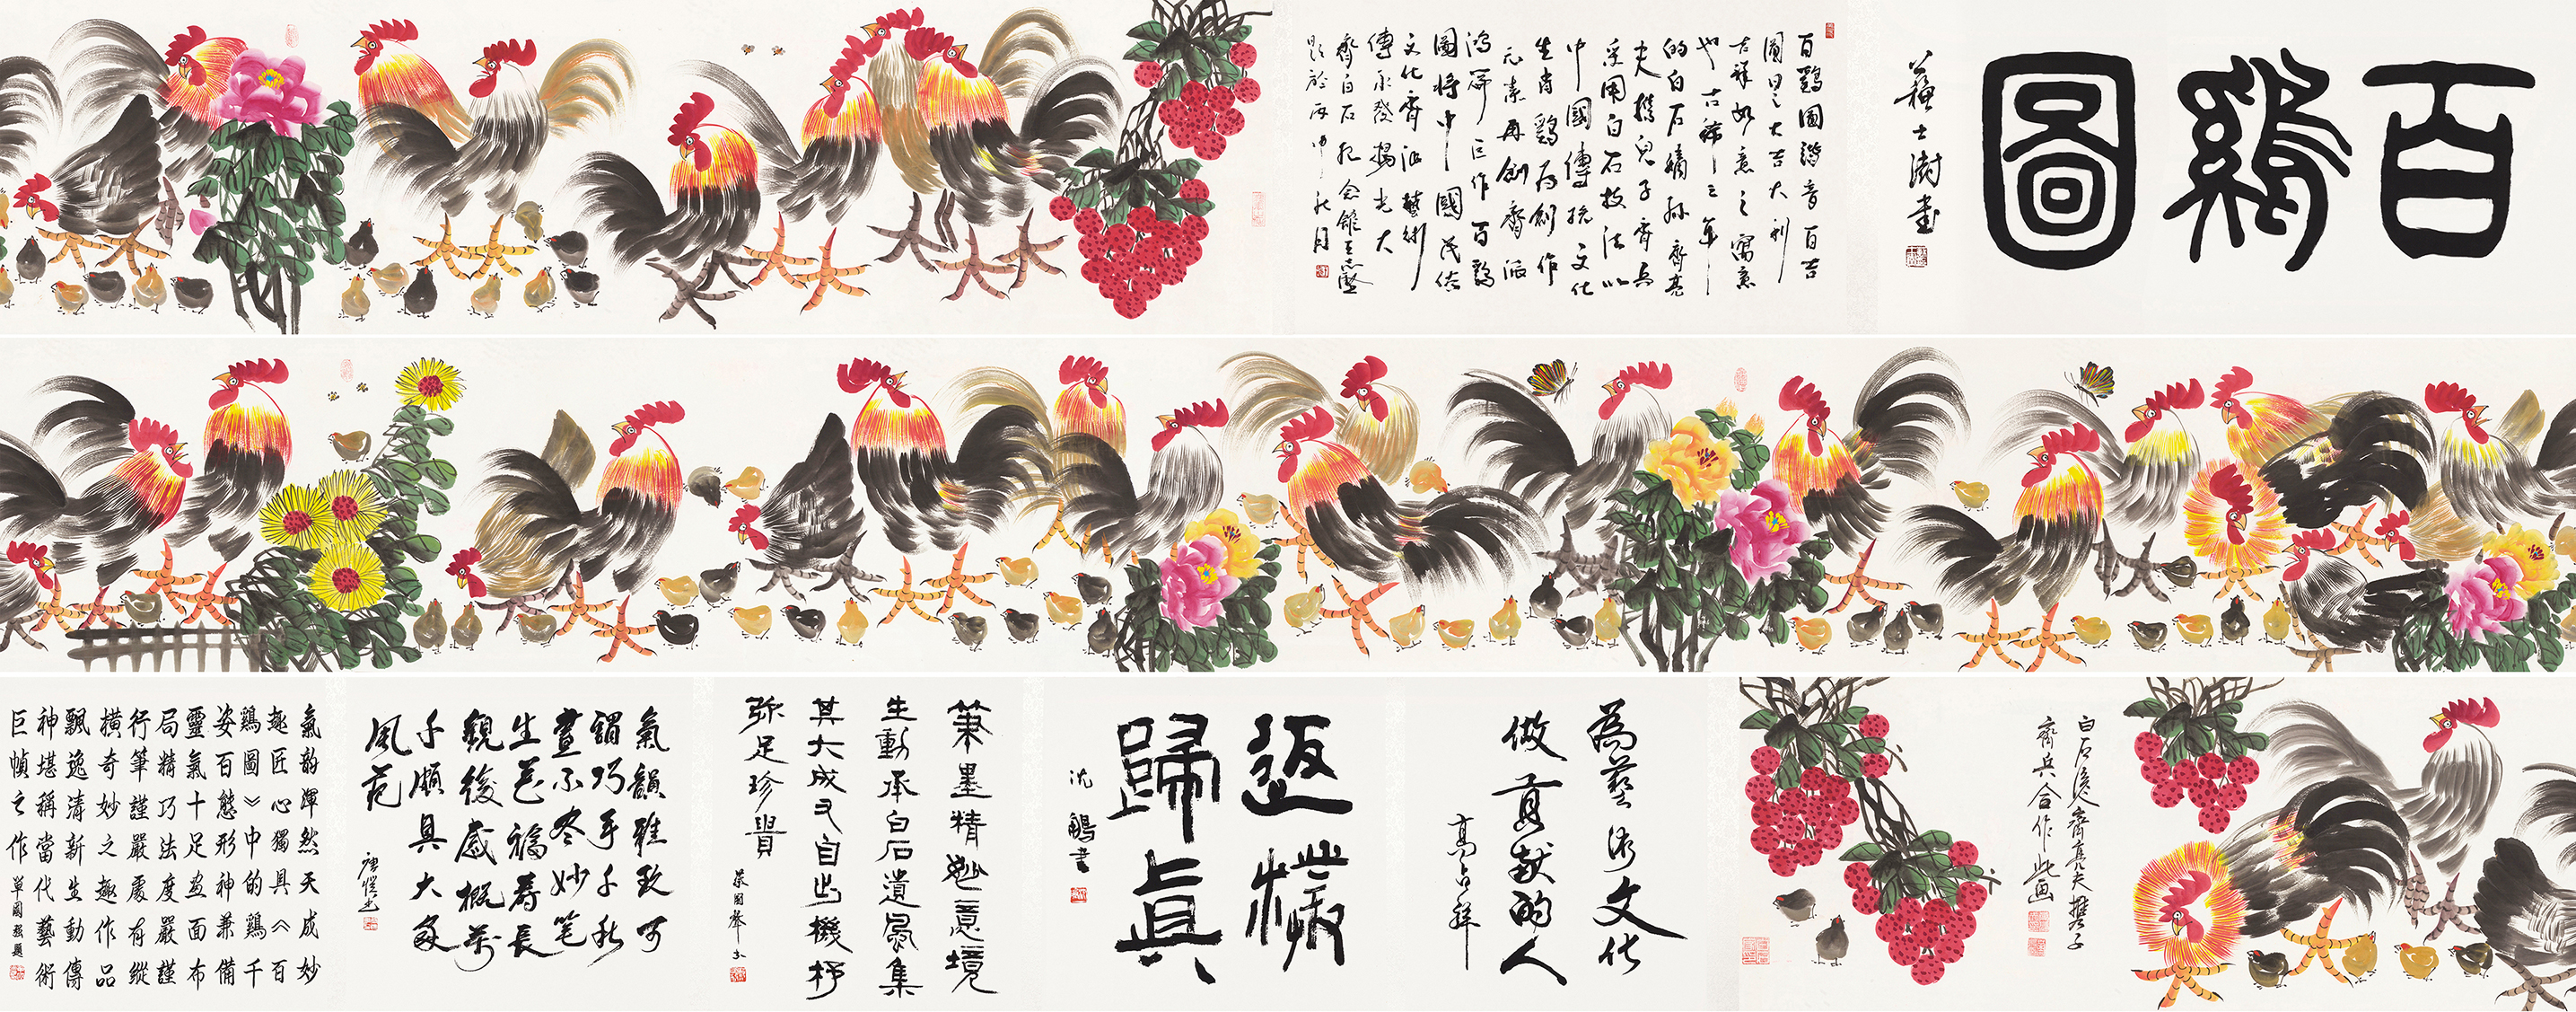 百鷄圖
蘇士澍書
百鷄圖諧音百吉
圖曰之大吉大利
吉祥如意之寓意
也古稀之年
的白石嫡孫齊亮
夫攜兒子齊兵
采用白石技法以
中國傳統文化
生肖鷄為創作
元素再創齊派
鴻篇巨作百鷄
圖將中國民俗
文化齊派藝術
傳承發揚光大
齊白石紀念館王志
題於丙申秋月
白石後齊亮夫攜子
齊兵合作此画
為藝術文化
做貢獻的人
高占祥
返樸
歸真
沈鵬書
筆墨精妙意境
生動承白石遺風集
其大成又自出機杼
弥足珍貴
氣韻雅致可
謂巧手千秋
畫不盡妙笔
生花福壽長
觀後感概萬
千頗具大家
風范
氣韵渾然天成妙
趣匠心獨具《百
鷄圖》中的鷄千
姿百態形神兼備
靈氣十足畫面布
局精巧法度嚴謹
行筆謹嚴處有縱
橫奇妙之趣作品
飄逸清新生動傳
神堪稱當代藝術
巨幀之作
單國強題